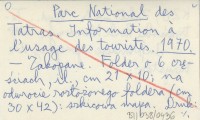 Parc National des
Tatras. Information à
l'usage des touristes. 1970
- Zakopane. Folder o 6 czę-
ściach, il., cm 21 x 10; na
odwrocie rozłożonego foldera (cm
30 x 42): szkicowa mapa. Druk: